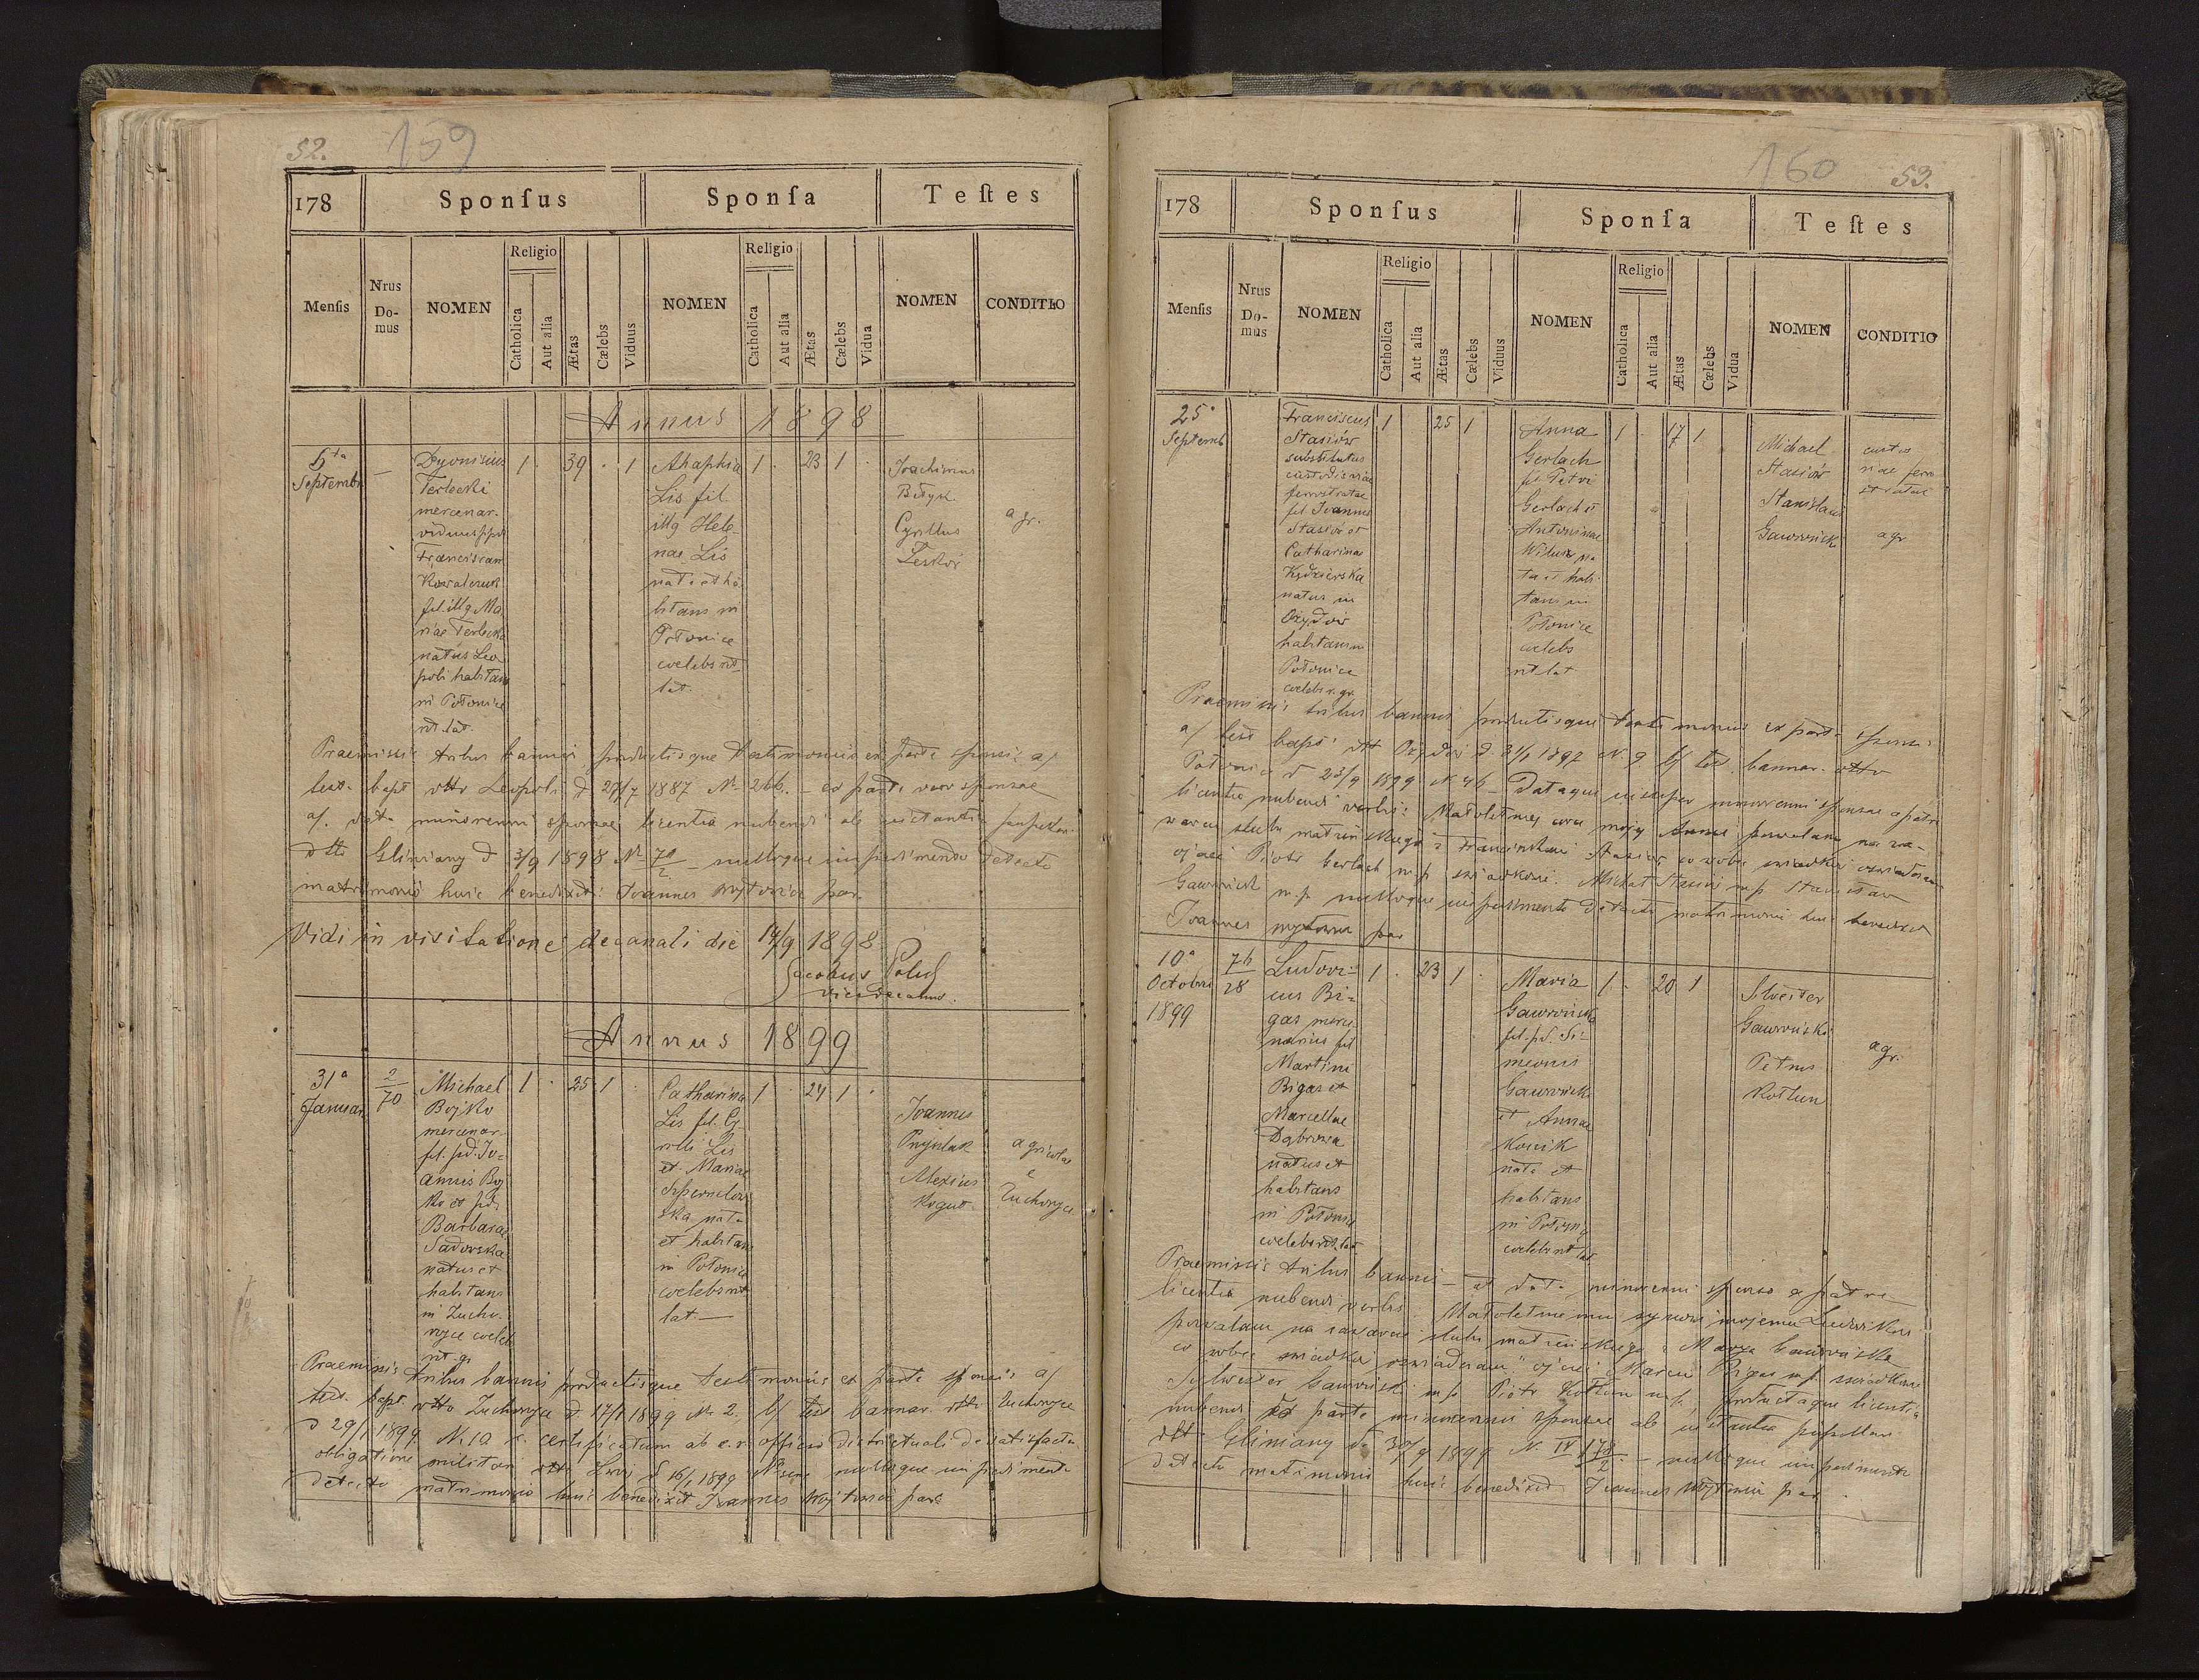 52. 159
178 Sponſus Sponſa Teſtes
Menſis Nrus Do-mus NOMEN Religio Catholica Aut alia Ætas Cælebs Viduus NOMEN Religio Catholica Aut alia Ætas Cælebs Vidua NOMEN CONDITIO
Annus 1898
5ta
Septembr
—
Dyonisius
Terlecki
mercenar.
viduus p.p.d.
Franciscam
Kowalczuk
fil. illg Ma
riae Terlecka
natus Leo
poli habitans
in Połonice
rt. lat.
1 · 39 · 1
Ahaphia
Lis fil.
illg Hele
nae Lis
nata et ha
bitans in
Połonice
coelebs rt
lat.
1 · 23 1 ·
Joachimus
Cyrillus
agr.
Praemissis tribus bannis, productisque testimoniis ex parte sponsi a/
test. bapt. dtto Leopoli d 27/7 1887 № 266. — ex parte vero sponsae
a/. data minorenni sponsae licentia nubendi ab instantia pupillar.
dtto Gliniany d 3/9 1898 № 70/2 — nulloque impedimento detecto
matrimonio huic benedixit: Joannes Wojtowicz par.
Vidi in visitatione decanali die 14/9 1898
Jacobus
vicedecanus.
Annus 1899
31a
Januar
2/70
Michael
Bojko
mercenar.
fil. p.d. Jo=
annis Boj
ko et p.d.
Barbarae
Sadowska
natus et
habitans
in Zucho
rzyce coeleb
rt. gr.
1 · 25 1
Catharina
Lis fil. Cy
rilli Lis
et Mariae
ska nata
et habitans
in Połonice
coelebs rt
lat. —
1 · 24 1 ·
Joannes
Alexius
Kogut
agricolae
e
Zuchorzyce
Praemissis tribus bannis productisque testimoniis ex parte sponsi a/
test. bapt. dtto Zuchorzyce d. 17/1 1899 № 2. b/ test bannar. dtto Zuchorzyce
d 29/1 1899 N. 10 c. certificatum ab c. r. officio districtuali de satisfacta
obligatione militari dtto Lwów d 16/1 1899 № sine nulloque impedimento
detecto matrimonio huic benedixit Joannes Wojtowicz par.
160 53.
178 Sponſus Sponſa Teſtes
Menſis Nrus Do-mus NOMEN Religio Catholica Aut alia Ætas Cælebs Viduus NOMEN Religio Catholica Aut alia Ætas Cælebs Vidua NOMEN CONDITIO
25a
Septemb
Franciscus
Stasiów
substitutus
custodis viae
ferrostratae
fil. Joannis
Stasiów et
Catharinae
Kędzierska
natus in
Ożydów
habitans in
Połonice
coelebs r. gr.
1 25 1
Anna
Gerlach
fil. Petri
Gerlach et
Antoninae
na
ta et habi
tans in
Połonice
coelebs
rt lat
1 · 17 1
Michael
Stasiów
Stanislaus
Gawroński
custos
viae ferro
stratae
agr
Praemissis tribus bannis productisque testimoniis ex parte sponsi
a/ test bapt. dtt Ożydów d. 31/1 1897 N. 9. b/ test. bannar. dtto
Połonice d 23/9 1899 N 46 — Dataque insuper minorenni sponsae a patre
licentia nubendi verbis: Małoletniej córce mojej Annie pozwalam na za-
warcie ślubu małżeńskiego z Franciszkiem Stasiów co wobec świadków oświadczam
ojciec Piotr Gerlach mp. świadkowie: Michał Stasiów mp Stanisław
Gawroński m.p. nulloque impedimento detecto matrimonio huic benedixit
Joannes Wojtowicz par
10a
Octobris
1899
76/28
Ludovi=
cus Bi=
gas merce
narius fil
Martini
Bigas et
Marcellae
Dąbrowa
natus et
habitans
in Połonice
coelebs rt. lat
1 · 23 1 ·
Maria
Gawrońska
fil. p.d. Si=
meonis
Gawroński
et Annae
Kosik
nata et
habitans
in Połonice
coelebs rt lat
1 · 20 1
Silvester
Gawroński
Petrus
Kołtun
agr.
Praemissis tribus bannis — et data minorenni sponso a patre
licentia nubendi verbis: Małoletniemu synowi mojemu Ludwikowi
pozwalam na zawarcie ślubu małżeńskiego z Maryą Gawrońską
co wobec świadków oświadczam" ojciec Marcin Bigas mp. świadkowie
Sylwester Gawroński mp. Piotr Kołtun mp, productaque licentia
nubendi ex parte minorennis sponsae ab instantia pupillari
dtto Gliniany d. 30/9 1899 N. IV 178/2 — nulloque impedimento
detecto matrimonio huic benedixit Joannes Wojtowicz par.